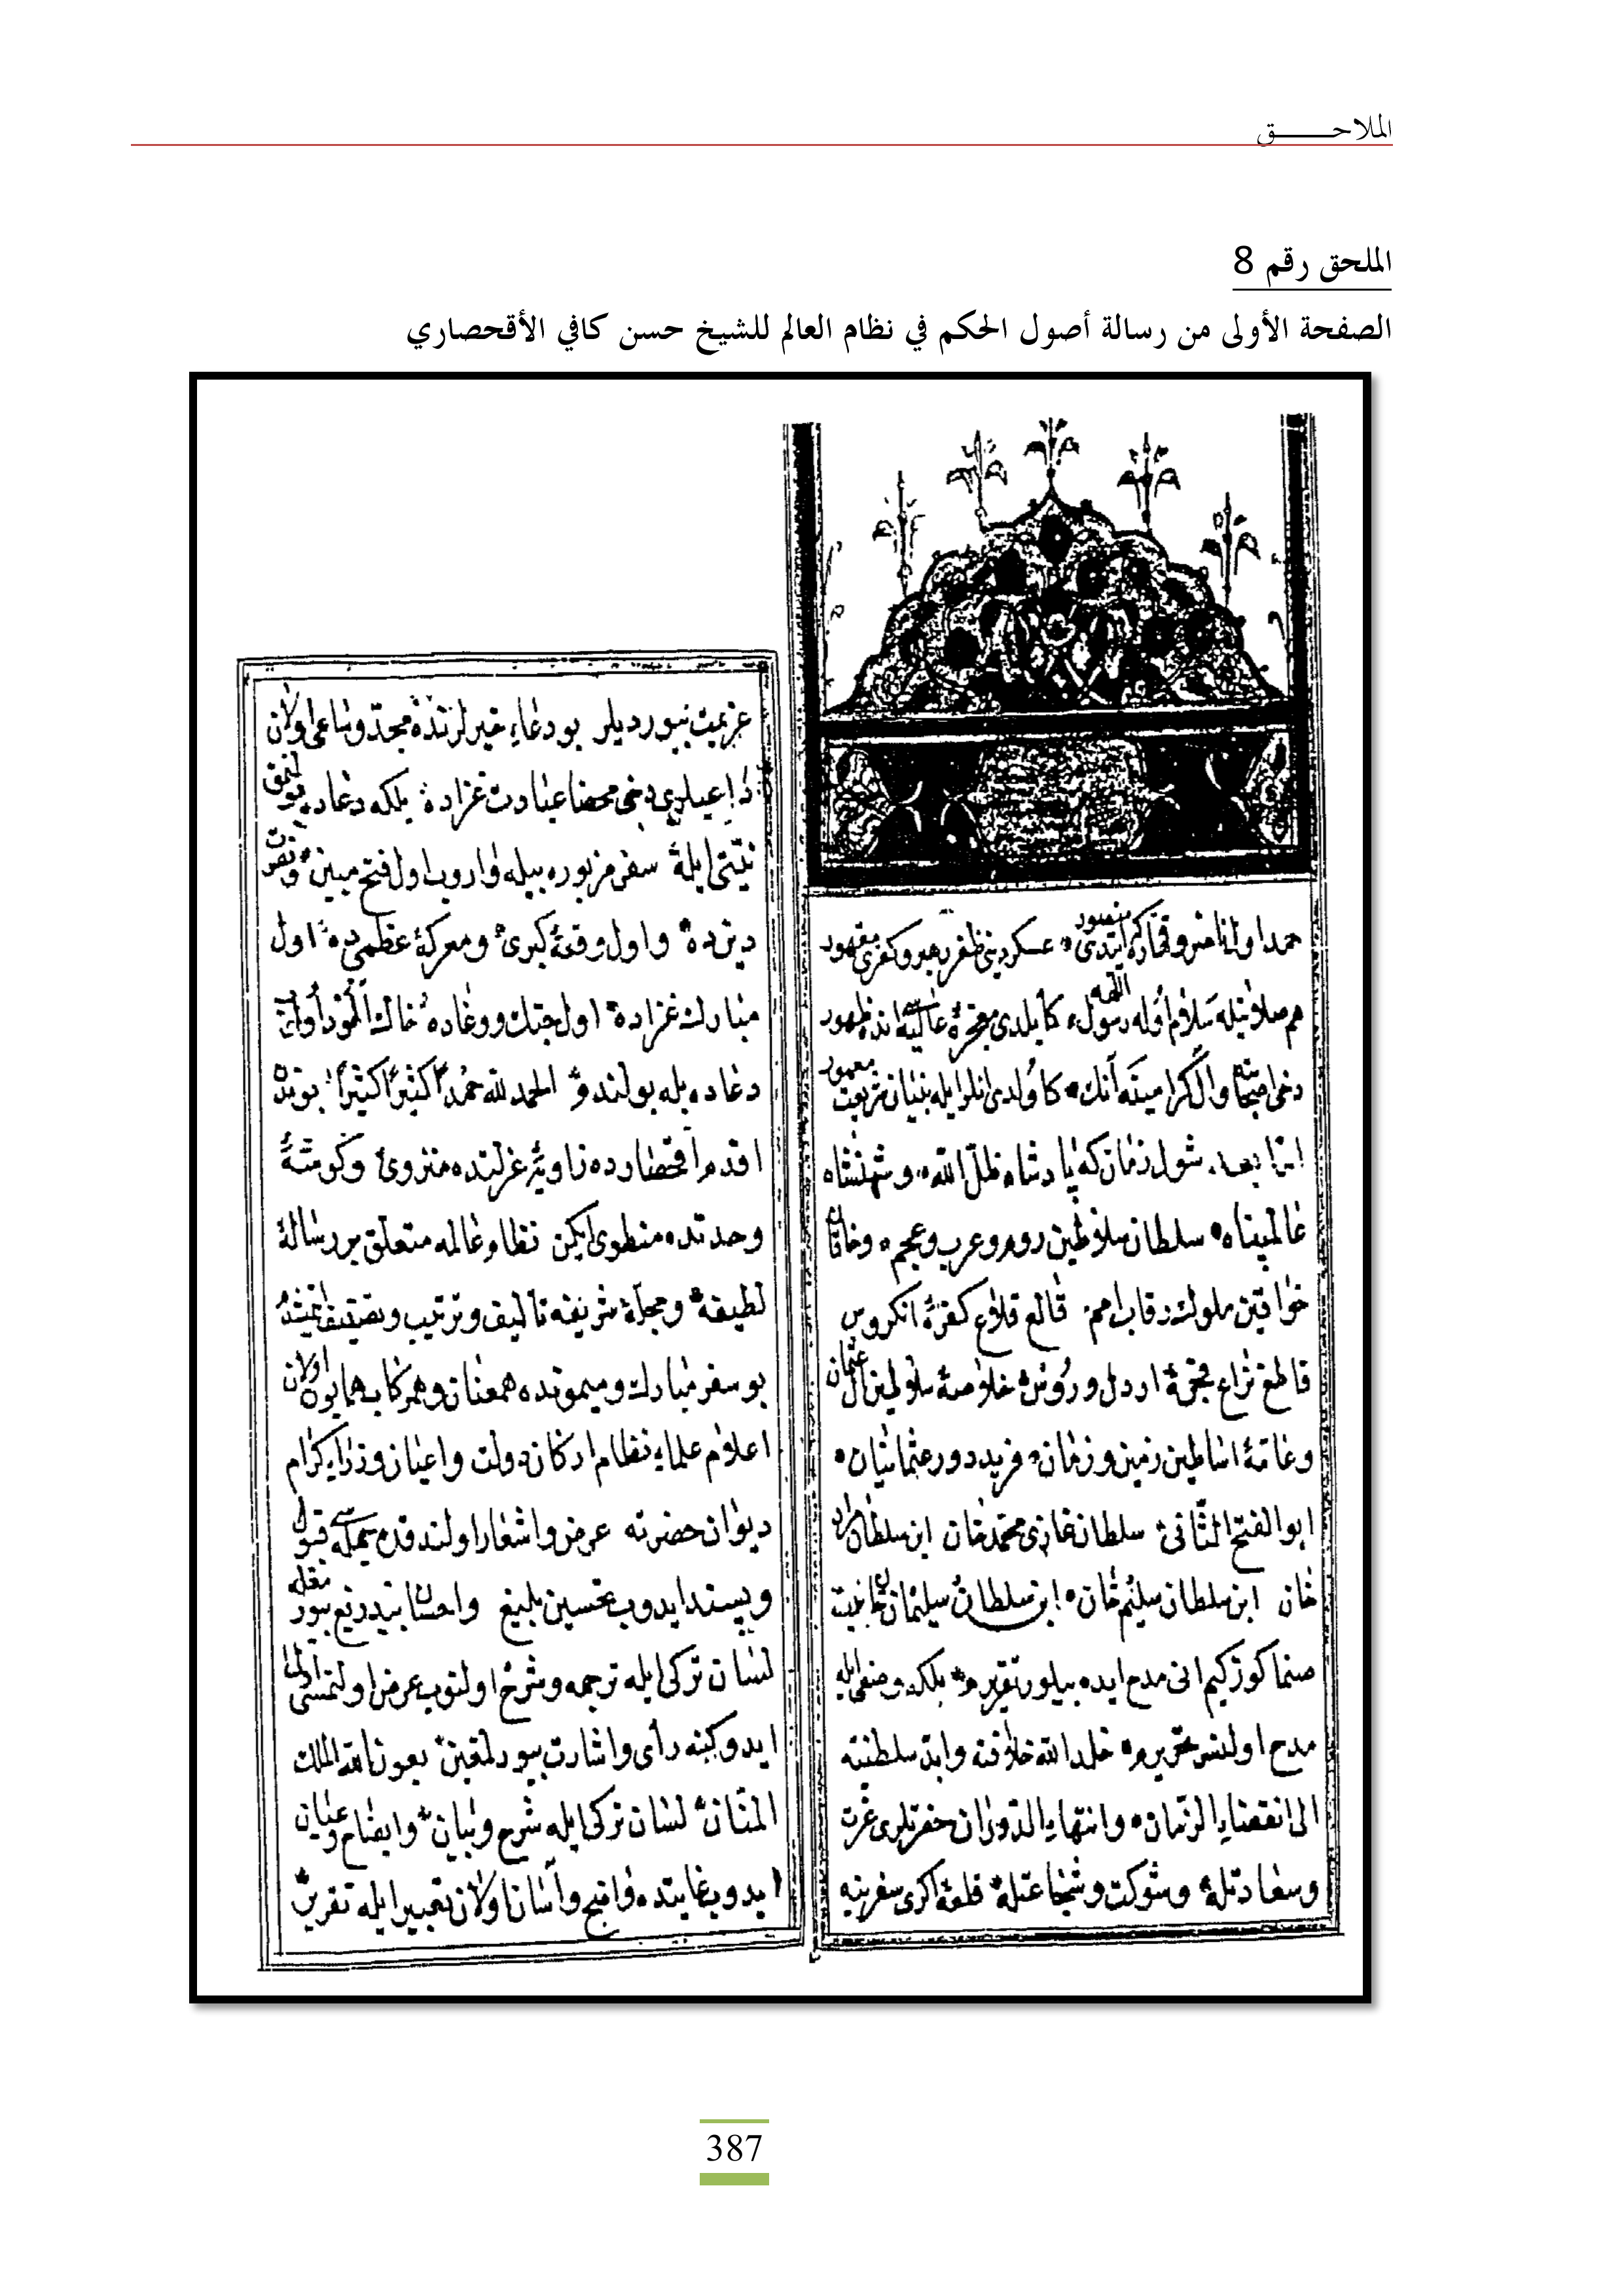 الملاحــــــق
الملحق رقم 8
الصفحة الأولى من رسالة أصول الحكم في نظام العالم للشيخ حسن كافي الأقحصاري
حمد اول ناصر و عسكر ديني ظفر كفرى مقهور
هم صلاوتيله سلام اول رسول الله كا كلدى معجزهٔ عاليه سى ظهور
دخى والكرامينه آنك كا اولدى انلر ايله بنيان شريعت معمور
اما بعد شول زمان كه پادشاه ظل الله و شهنشاه
عالمپناه سلطان سلاطين روم و عرب و عجم و خاقان
خواقين ملوك رقاب امم قالع قلاع كفرهٔ انكروس
قاطع اردل و روس خلاصهٔ سلاطين آل عثمان
اساطين زمين و زمان فريد دور عثمانيان
ابو الفتح الثانى سلطان غازى محمد خان ابن سلطان مراد
خان ابن سلطان سليم خان ابن سلطان سليمان خان
كيم انى مدح ايده بيلور تقريرم بلكه وصفى ايله
مدح اولنسر تحريرم خلد الله خلافته وابد سلطنته
الى انقضاء الزمان وانتهاء الدوران حضرتلرى عزت
وسعادتله وشوكت وشجاعتله قلعهٔ اكرى سفرينه
عزيمت بيورديلر بو دعاء خير مجد وساعى اولان
داعيلرى دخى محضا عبادت غزاده بلكه دعاده بولنمق
نيتى ايله سفر مزبوره بيله واروب اول فتح مبين ونصرت
دينده واول وقعهٔ كبرى ومعركهٔ عظمى ده اول
مبارك غزاده اول جنك ووغاده
دعاده بله بولندى الحمد لله حمدا كثيرا كثيرا بوندن
اقدم اقحصارده زاويهٔ عزلتده منزوى وكوشهٔ
وحدتده منطوى ايكن نظام عالمه متعلق بر رسالهٔ
لطيفه ومجلهٔ شريفه تأليف وترتيب وتصنيف
بو سفر مبارك وميمونده همعنان وهمركاب همايون اولان
اعلام علماء نظام اركان دولت واعيان وزراء كرام
ديوان حضرته عرض واشعار اولندقده جمله سى قبول
وپسند ايدوب تحسين بليغ واحسان بيدريغ
لسان تركى ايله ترجمه وشرح اولنوب عرض اولنمسى
رأى واشارت بيورلمغين بعون الله الملك
المنان لسان تركى ايله شرح وبيان وايضاح وعيان
ايدوب غايتده واضح وآسان اولان تعبير ايله تقرير
387